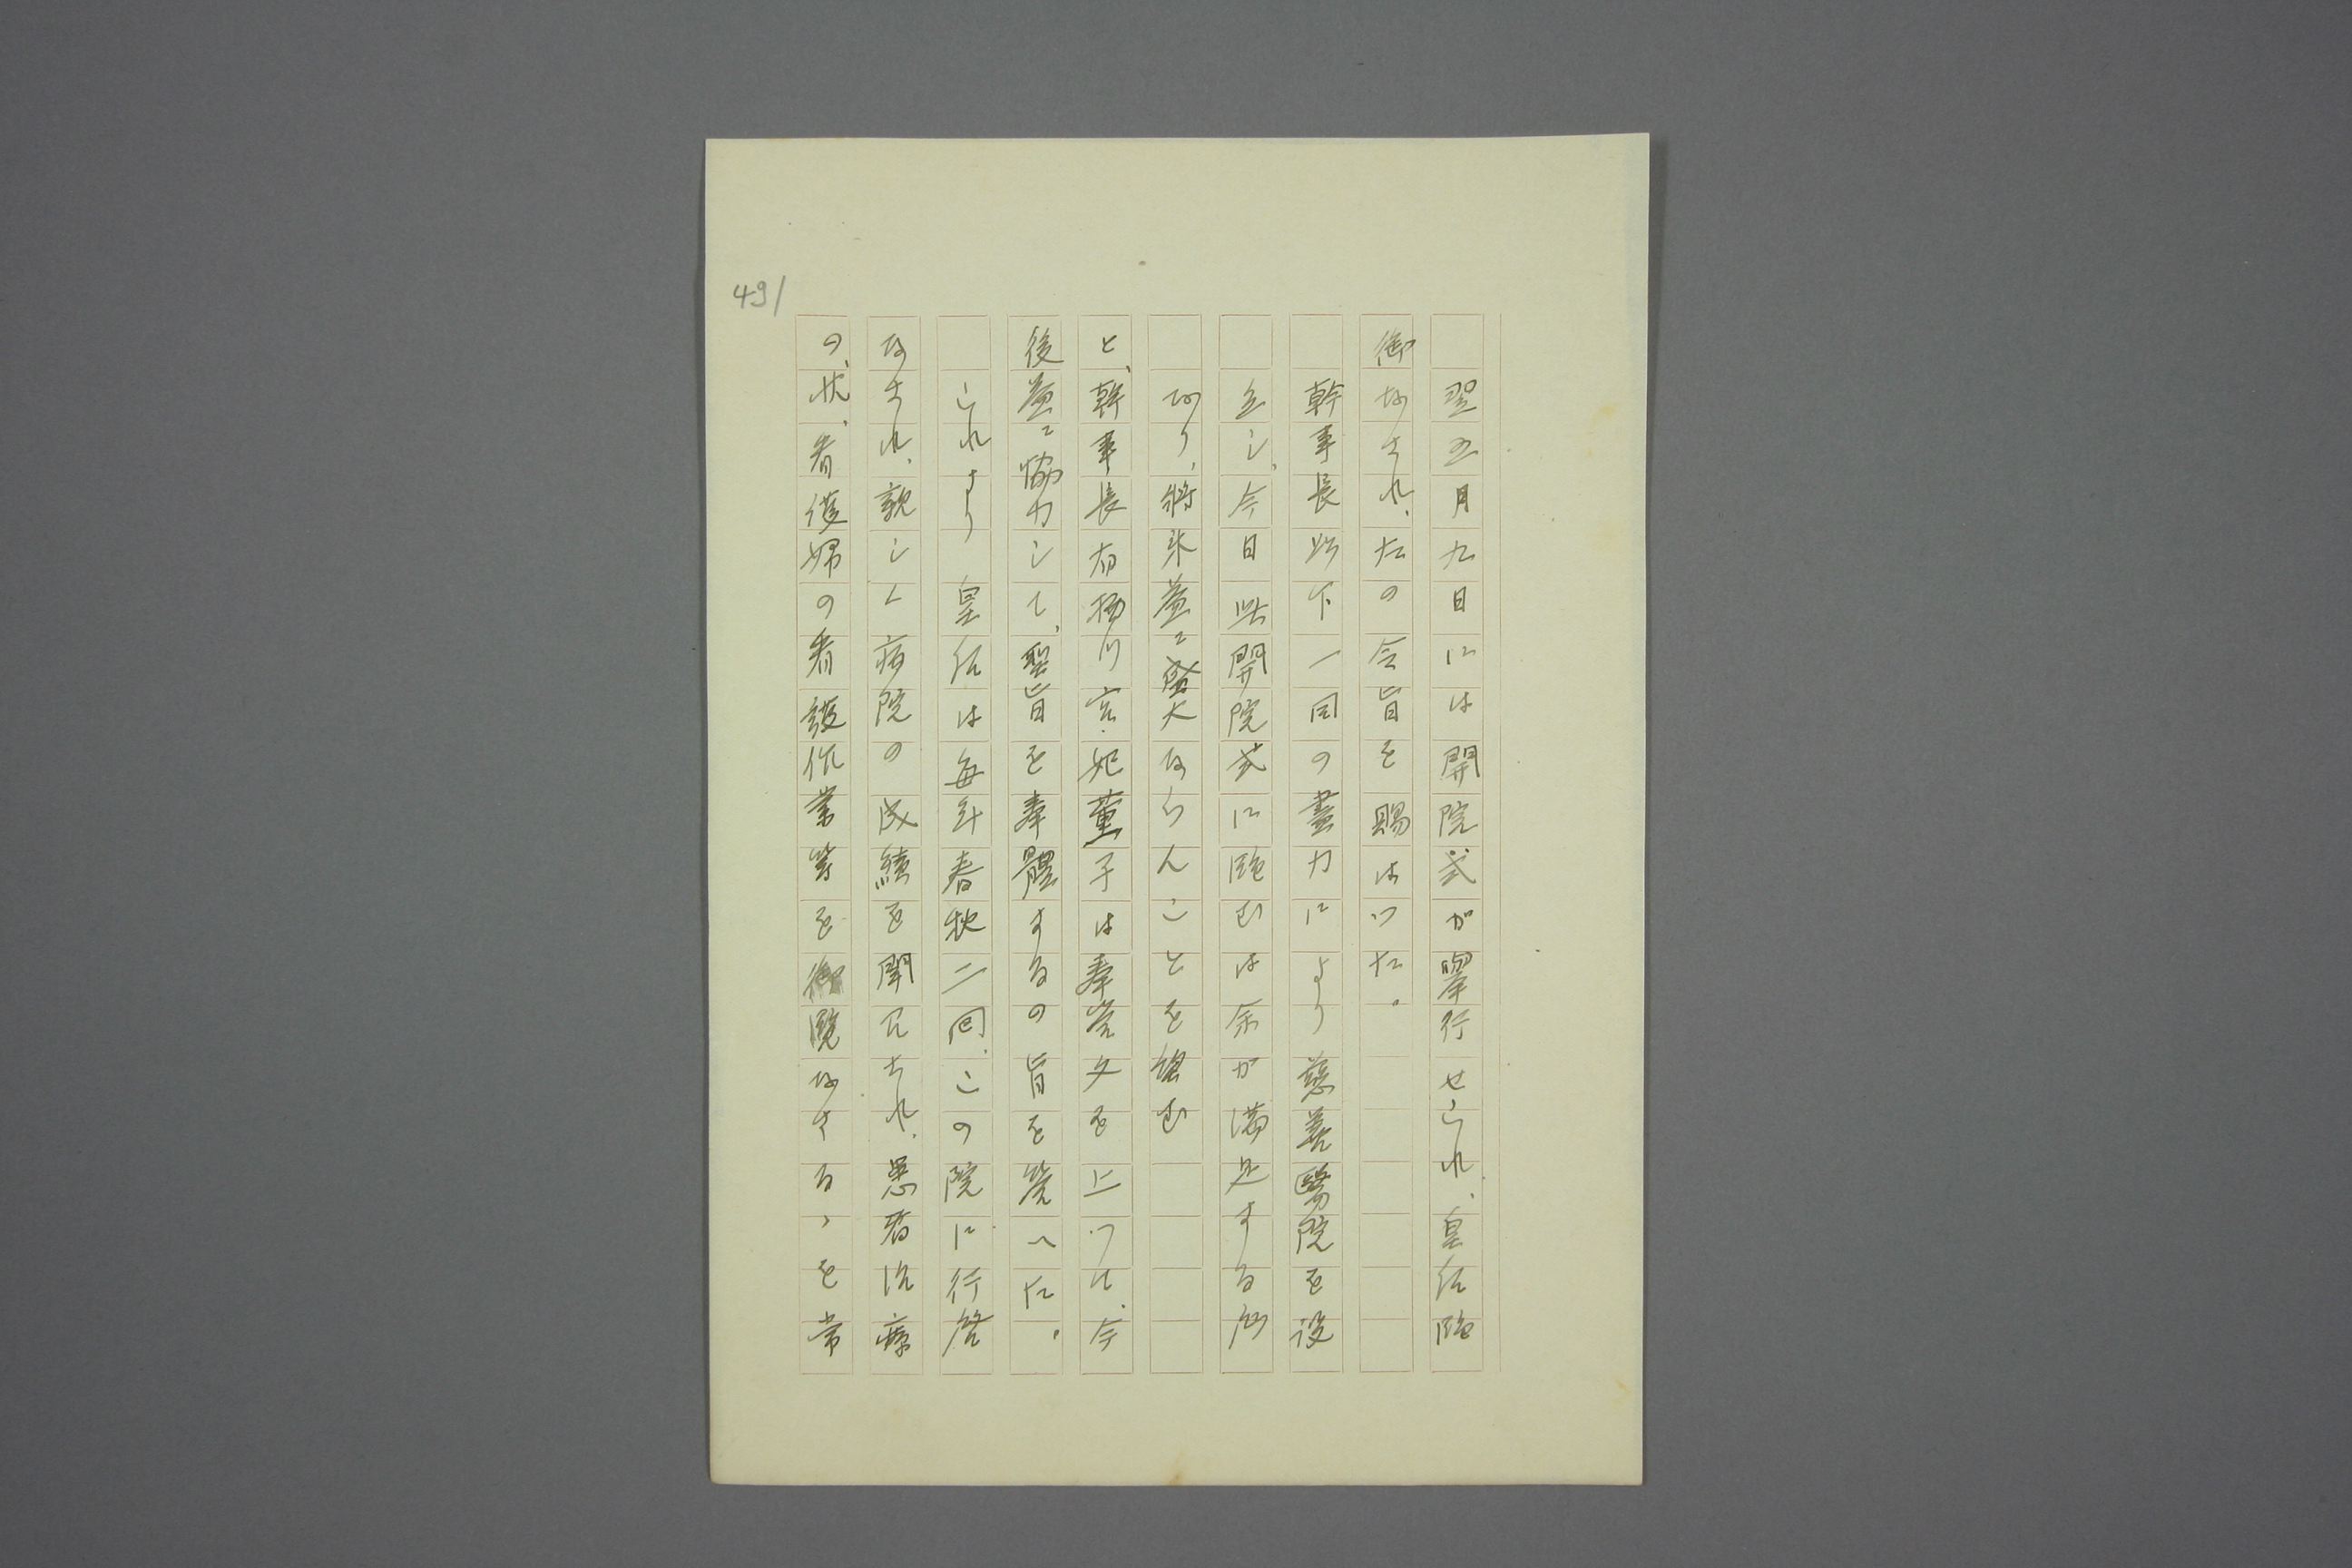 491
翌五月九日には開院式が擧行せられ、皇后臨
御なされ、左の令旨を賜はつた。
幹事長以下一同の盡力により慈善醫院を設
立し、今日此開院式に臨むは余が満足する所
なり、將来益々盛大ならんことを望む
と、幹事長有栖川宮妃董子は奉答文を上つて、今
後益々協力して、聖旨を奉體するの旨を答へた。
これより 皇后は毎年春秋二回、この院に行啓
なされ、親しく病院の成績を聞召され、患者治療
の状、看護婦の看護作業等を御覧なさるゝを常